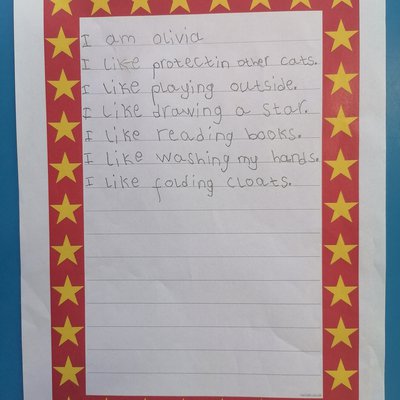 I am olivia
I like protectin other cats.
I like playing outside.
I like drawing a star.
I like reading books.
I like washing my hands.
I like folding cloats.